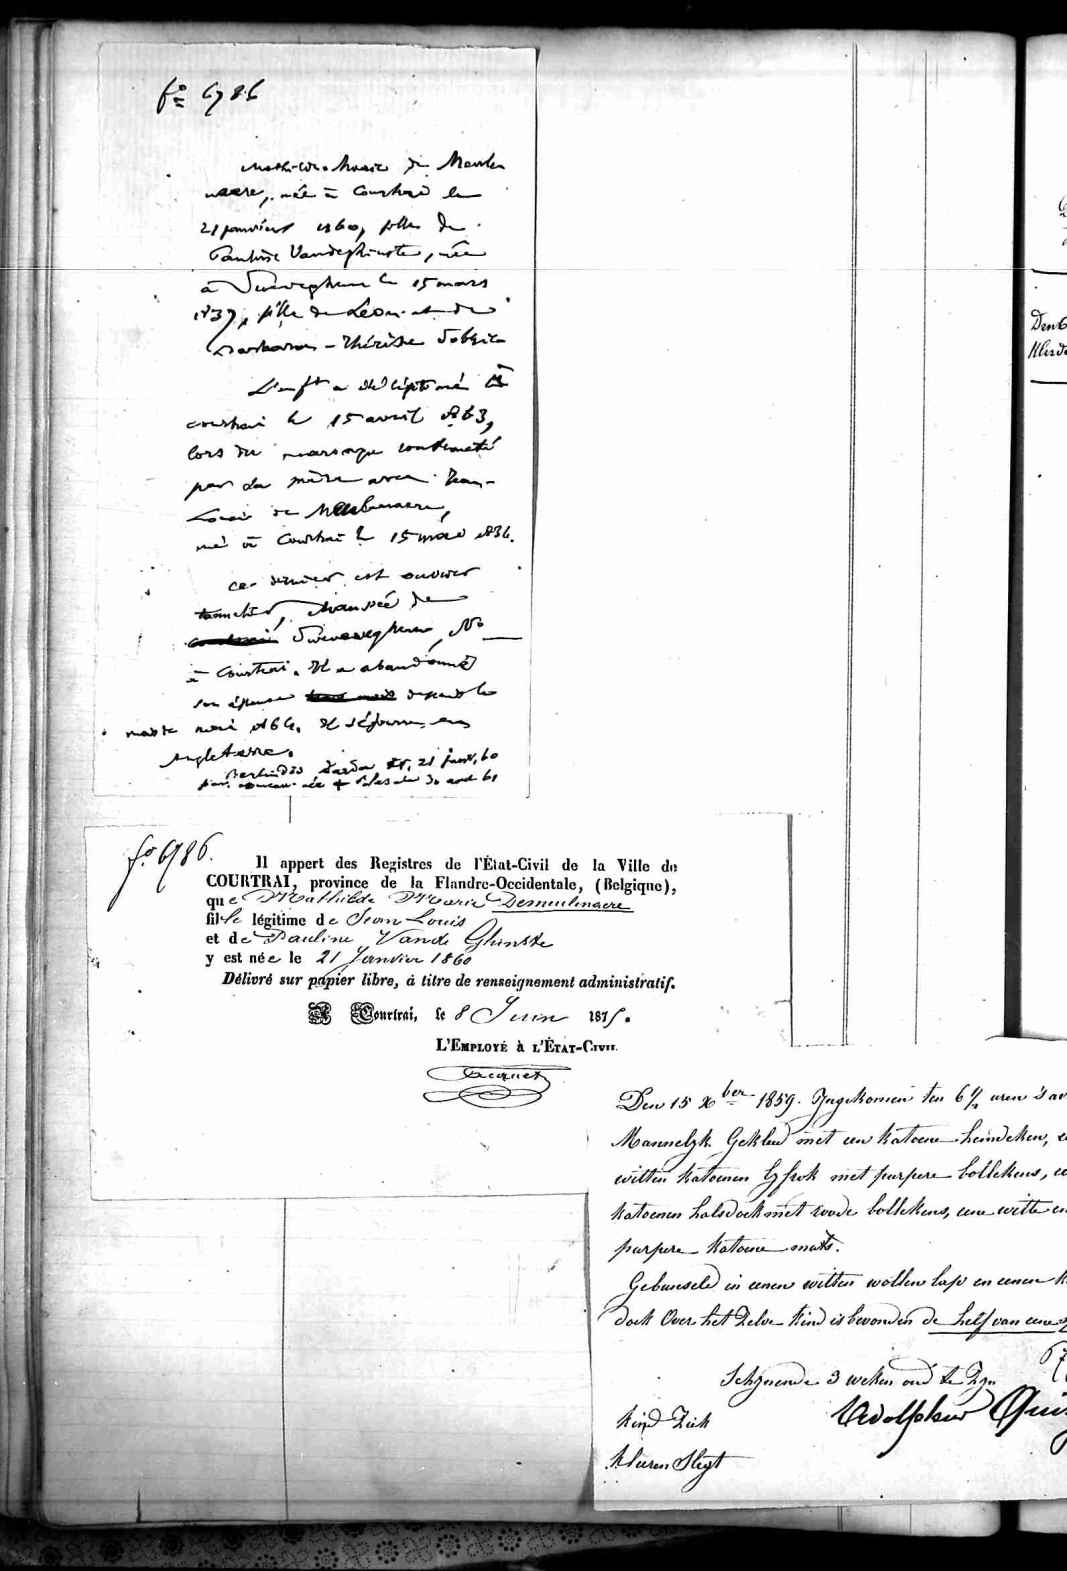 fo 6786
Mathilde Marie de Meule
naere, née à Courtrai le
21 janvier 1860, fille de
Pauline Vandeghinste, née
à Sweveghem le 15 mars
1837, fille de Léon et de
Barbara-Thérèse
L'enft a été légitimé à
Courtrai le 15 avril 1863,
lors du mariage contracté
par la mère avec Jean-
Louis de Meulenaere,
né à Courtrai le 15 mai 1836.
ce dernier est ouvrier
chaussée de
Sweveghem, No
à Courtrai. Il a abandonné
son épouse depuis le
mois de mai 1864. Il séjourne en
Angleterre.
21 janv. 60
30 août 61
fo 6786.
Il appert des Registres de l'État-Civil de la Ville de
COURTRAI, province de la Flandre-Occidentale, (Belgique),
que Mathilde Marie Demeulenaere
fille légitime de Jean Louis
et de Pauline Vande Ghinste
y est née le 21 Janvier 1860
Délivré sur papier libre, à titre de renseignement administratif.
A Courtrai, le 8 Juin 1875.
L'EMPLOYÉ à L'ÉTAT-CIVIL
Den 15 Xber 1859. Ingekomen ten 6 1/2 uren 's av
Mannelyk. Gekleed met een katoene hemdeken,
witten katoenen lyfrok met purpere bollekens,
katoenen halsdoek met roode bollekens, eene witte en
purpere katoene muts.
Gebunseld in eenen witten wollen lap en eenen
doek Over het Zelve kind is bevonden de helf van eene
Schynende 3 weken oud te Zyn
Kind Ziek
Kleeren Slegt
Adolphus
Den 6